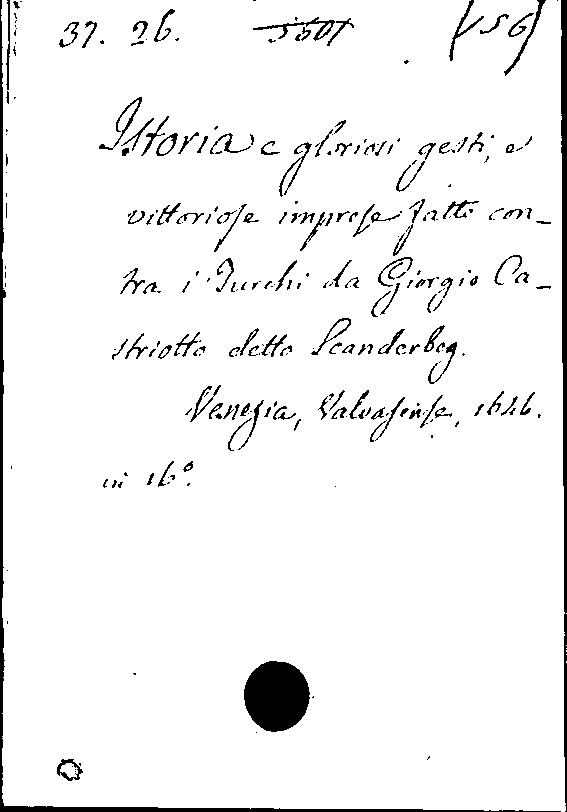 37. 26. 5601 (756)
Istoria e gloriosi gesti, e
vittoriose imprese fatte con-
tra i Turchi da Giorgio Ca-
striotto detto Scanderbeg.
Venezia, Valvasense, 1646.
in 16°.